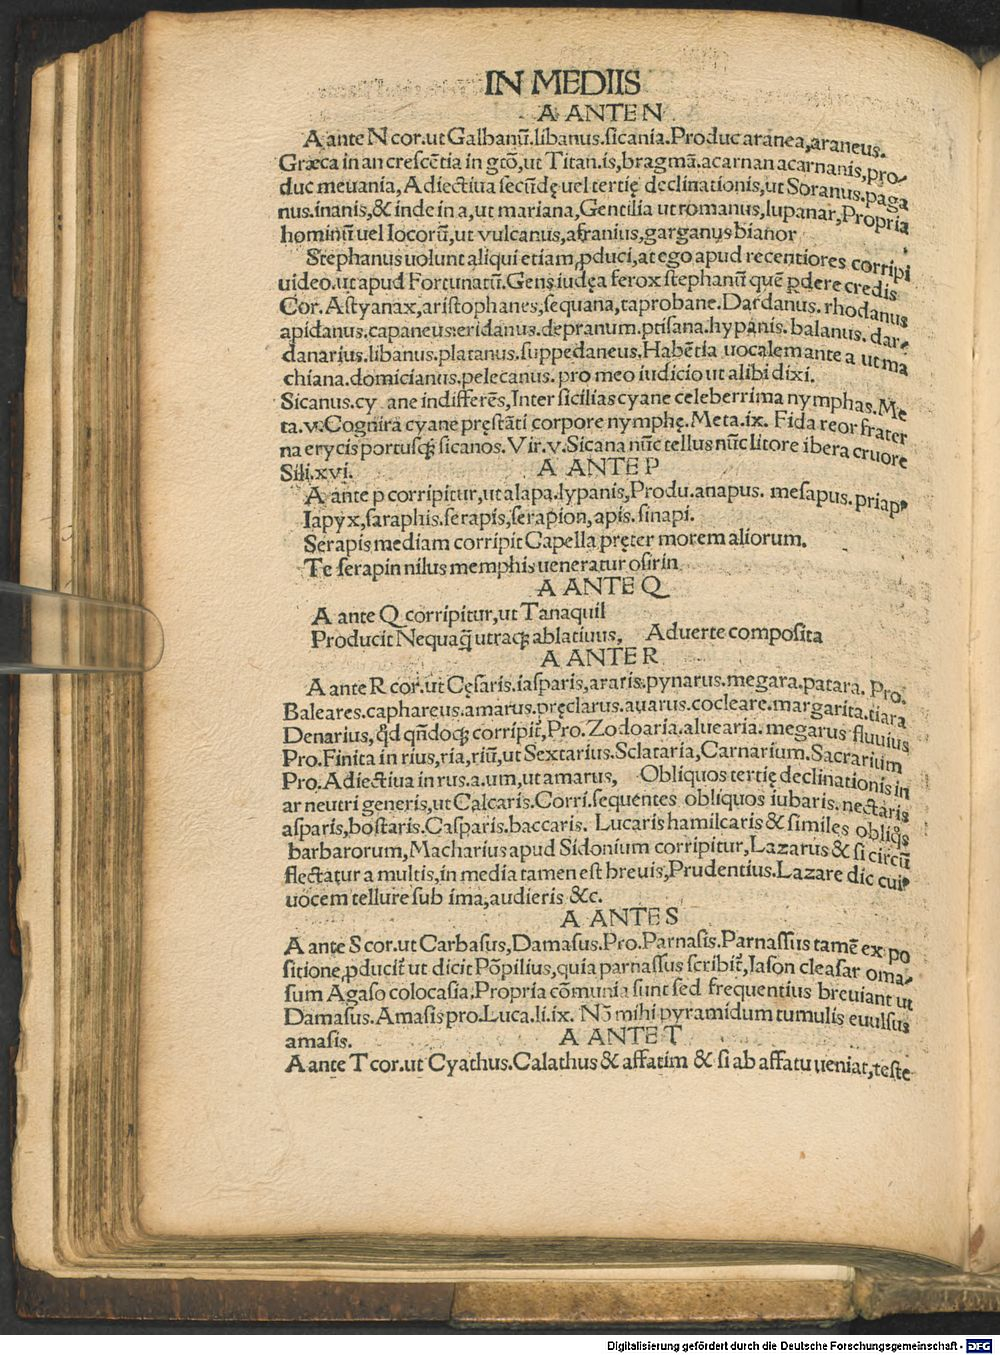 IN MEDIIS
A ANTE N
A ante N cor.ut Galbanū.libanus.sicania.Produc aranea,araneus.
Græca in an crescētia in gtō,ut Titan.is,bragmā.acarnan acarnanis,pro-
duc meuania,Adiectiua secūdę uel tertię declinationis,ut Soranus.paga
nus.inanis,& inde in a,ut mariana,Gentilia ut romanus,lupanar,Propria
hominū uel locorū,ut vulcanus,afranius,garganus bianor.
Stephanus uolunt aliqui etiam ꝓduci,at ego apud recentiores corripi
uideo.ut apud Fortunatū.Gens iudęa ferox stephanū quē ꝑdere credis
Cor.Astyanax,aristophanes,sequana,taprobane.Dardanus.rhodanus
apidanus.capaneus:eridanus.depranum.ptisana.hypanis.balanus.dar-
danarius.libanus.platanus.suppedaneus.Habētia uocalem ante a ut ma
chiana.domicianus.pelecanus.pro meo iudicio ut alibi dixi.
Sicanus.cy ane indifferēs,Inter sicilias cyane celeberrima nymphas.Me
ta.v.Cognira cyane pręstāti corpore nymphę.Meta.ix. Fida reor frater
na erycis portusqꝫ sicanos.Vir.v.Sicana nūc tellus nūc litore ibera cruore
Sili.xvi.
A ANTE P
A ante p corripitur,ut alapa.lypanis,Produ.anapus. mesapus.priapꝰ
Iapyx,saraphis.serapis,serapion,apis.sinapi.
Serapis mediam corripit Capella pręter morem aliorum.
Te serapin nilus memphis ueneratur osirin
A ANTE Q
A ante Q corripitur,ut Tanaquil
Producit Nequaq̄ utraqꝫ ablatiuus, Aduerte composita
A ANTE R
A ante R cor.ut Cęsaris.iasparis,araris.pynarus.megara.patara. Pro.
Baleares.caphareus.amarus.pręclarus.auarus.cocleare.margarita.tiara
Denarius,qđ qñdoqꝫ corripit̃,Pro.Zodoaria.aluearia.megarus fluuius
Pro.Finita in rius,ria,riū,ut Sextarius.Sclataria,Carnarium.Sacrarium
Pro.Adiectiua in rus.a.um,ut amarus, Obliquos tertię declinationis in
ar neutri generis,ut Calcaris.Corri.sequentes obliquos iubaris.nectaris
asparis,bostaris.Casparis.baccaris. Lucaris hamilcaris & similes obliq̊s
barbarorum,Macharius apud Sidonium corripitur,Lazarus & si circū
flectatur a multis,in media tamen est breuis,Prudentius.Lazare dic cuiꝰ
uocem tellure sub ima,audieris &c.
A ANTE S
A ante S cor.ut Carbasus,Damasus.Pro.Parnasis.Parnassus tamē ex po
sitione,ꝓducit̃ ut dicit Pōpilius,quia parnassus scribit̃,Iason cleasar oma-
sum Agaso colocasia.Propria cōmunia sunt sed frequentius breuiant ut
Damasus.Amasis pro.Luca.li.ix. Nō mihi pyramidum tumulis euulsus
amasis.
A ANTE T
A ante T cor.ut Cyathus.Calathus & affatim & si ab affatu ueniat,teste
Digitalisierung gefördert durch die Deutsche Forschungsgemeinschaft - DFG